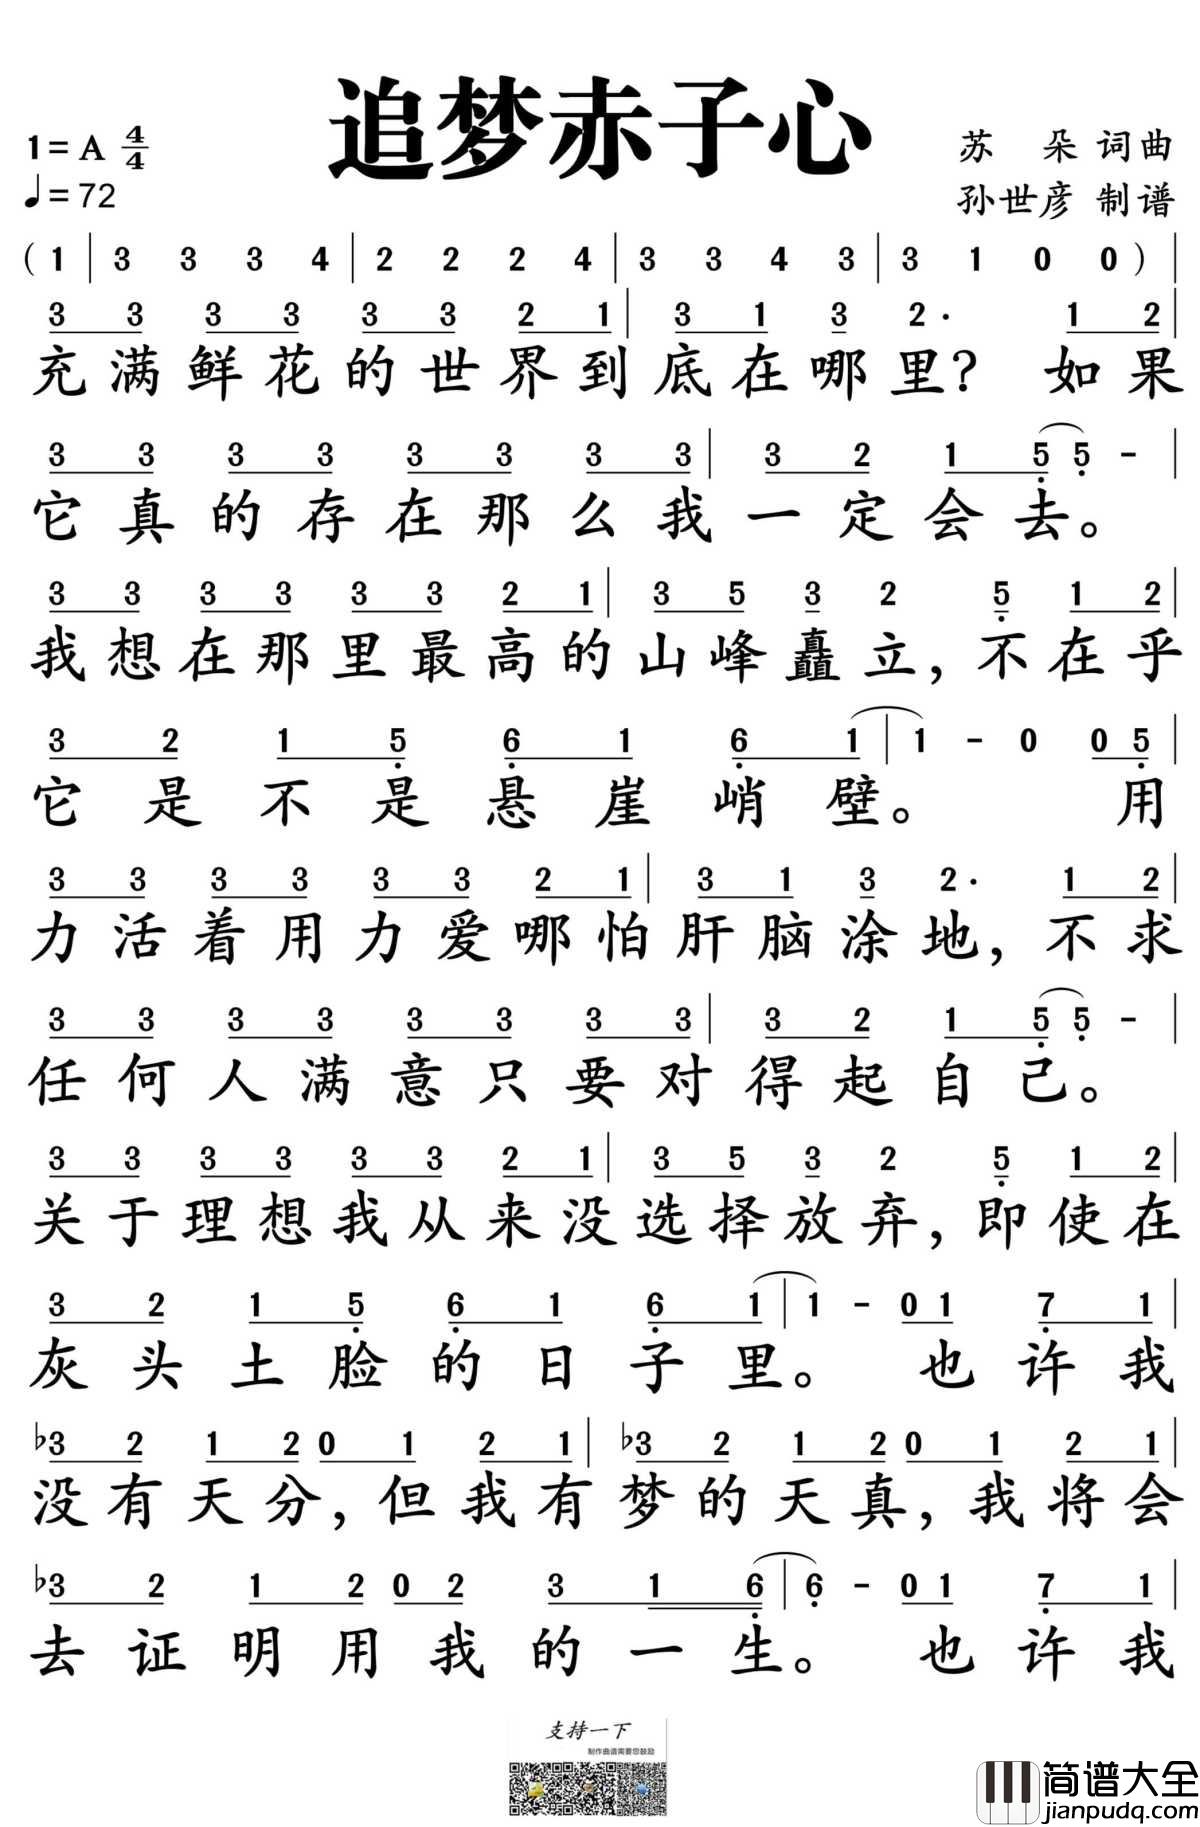 追梦赤子心
1=A 4/4
♩=72
苏 朵 词曲
孙世彦 制谱
(1| 3 3 3 4| 2 2 2 4| 3 3 4 3| 3 1 0 0)|
3 3 3 3 3 3 2 1| 3 1 3 2· 1 2|
充满鲜花的世界到底在哪里？ 如果
3 3 3 3 3 3 3 3| 3 2 1 5 5 -|
它真的存在那么我一定会去。
3 3 3 3 3 3 2 1| 3 5 3 2 5 1 2|
我想在那里最高的山峰矗立，不在乎
3 2 1 5 6 1 6 1|1 - 0 0 5|
它是不是悬崖峭壁。 用
3 3 3 3 3 3 2 1| 3 1 3 2· 1 2|
力活着用力爱哪怕肝脑涂地，不求
3 3 3 3 3 3 3 3| 3 2 1 5 5 -|
任何人满意只要对得起自己。
3 3 3 3 3 3 2 1| 3 5 3 2 5 1 2|
关于理想我从来没选择放弃，即使在
3 2 1 5 6 1 6 1|1 - 0 1 7 1|
灰头土脸的日子里。 也许我
♭3 2 1 2 0 1 2 1|♭3 2 1 2 0 1 2 1|
没有天分，但我有梦的天真，我将会
♭3 2 1 2 0 2 3 1 6|6 - 0 1 7 1|
去证明用我的一生。 也许我
支持一下
制作曲谱需要您鼓励
简谱大全
jianpudq.com